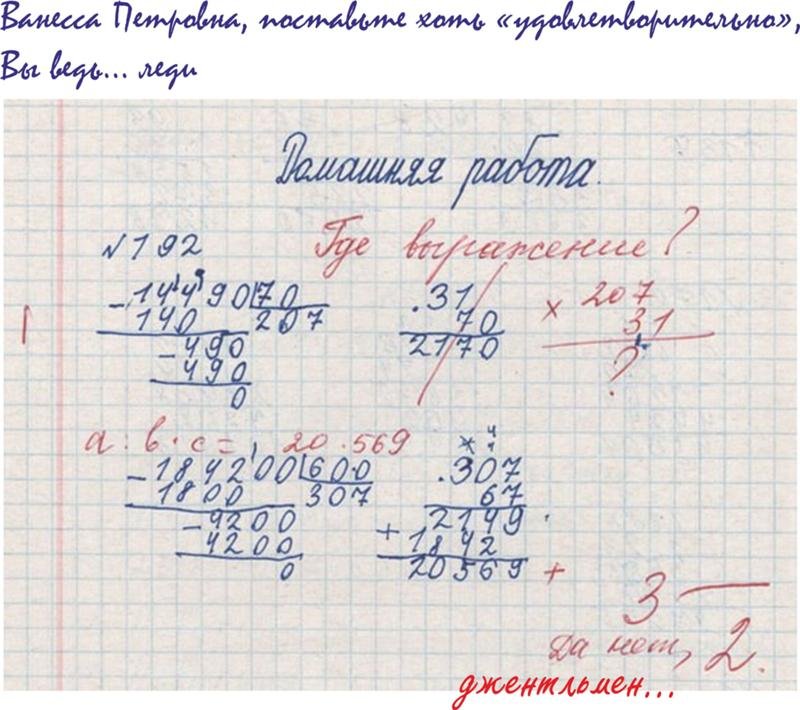 Ванесса Петровна, поставьте хоть «удовлетворительно»,
Вы ведь... леди
Домашняя работа.
№192
Где выражение?
14490 70
140 207
490
490
0
.31
70
2170
× 207
31
?
а : в · с = 20.569
184200 600
1800 307
4200
4200
0
.307
67
2149
+ 1842
20569 +
3 —
Да нет, 2.
джентльмен...